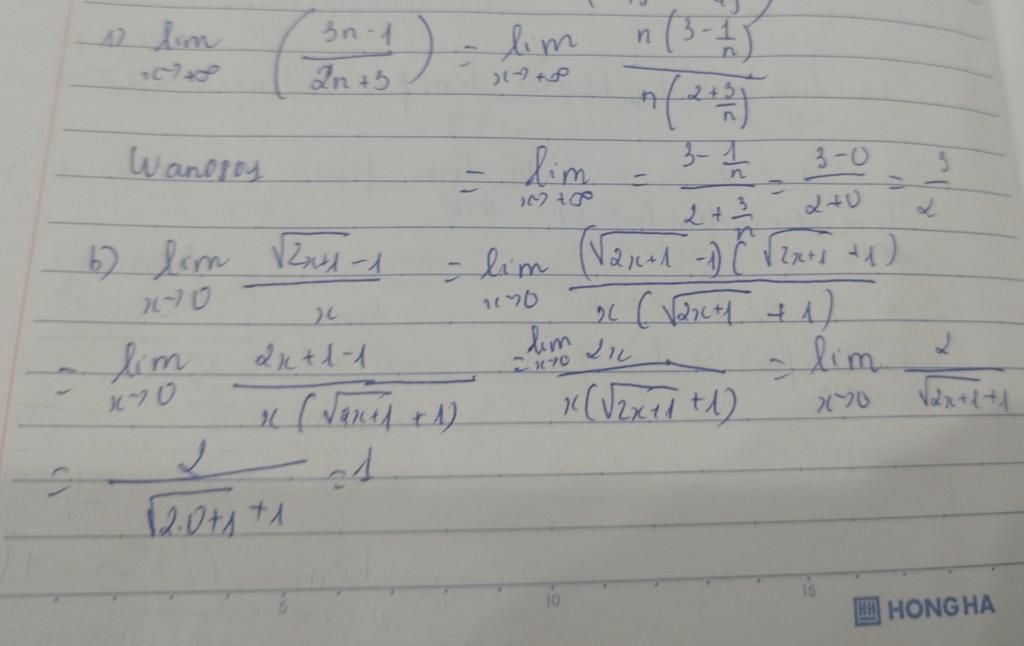 1) lim x→+∞ (3n-1 / 2n+3) = lim x→+∞ n(3-1/n) / n(2+3/n)
Wanopos = lim x→+∞ = 3-1/n / 2+3/n = 3-0 / 2+0 = 3/2
b) lim x→0 √2x+1-1 / x = lim x→0 (√2x+1 -1)(√2x+1 +1) / x(√2x+1 +1)
= lim x→0 2x+1-1 / x(√2x+1 +1) = lim x→0 2x / x(√2x+1 +1) = lim x→0 2 / √2x+1+1
= 2 / √2.0+1 +1 = 1
5 10 15
HH HONG HA